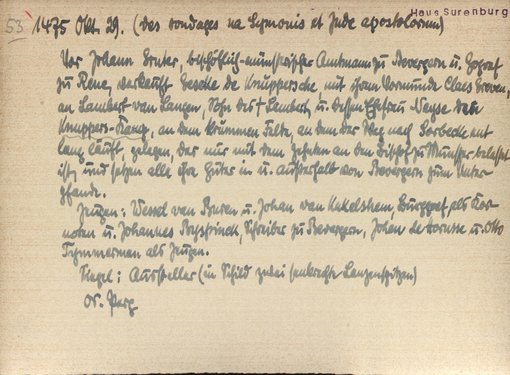 Haus Surenburg
53 1475 Okt. 29. (des sondages na Symonis et Jude apostolorum)
Vor Johann Bruter, bischöflich-münsterischer Amtmann zu Bevergern u. Gograf
zu Rene, verkauft Geseke de Knuppersche, mit ihrem Vormunde Claes Greven,
an Lambert van Langen, Sohn des † Lambert, u. dessen Ehefrau Neyse den
Knuppers-Kamp, an dem krummen Felde, an dem der Weg nach Sorbecke ent
lang läuft, gelegen, der nur mit dem Zehnten an den Bischof zu Münster belastet
ist, und setzen alle ihre Güter in u. außerhalb von Bevergern zum Unter
pfande.
Zeugen: Wessel van Buren u. Johan van Kakelshem, Burggraf, als Kor
noten u. Johannes, Schreiber zu Bevergern, Johan de u. Otto
Tymmerman als Zeugen.
Siegel: Aussteller (in Schild zwei senkrechte Lanzenspitzen)
Or. Perg.